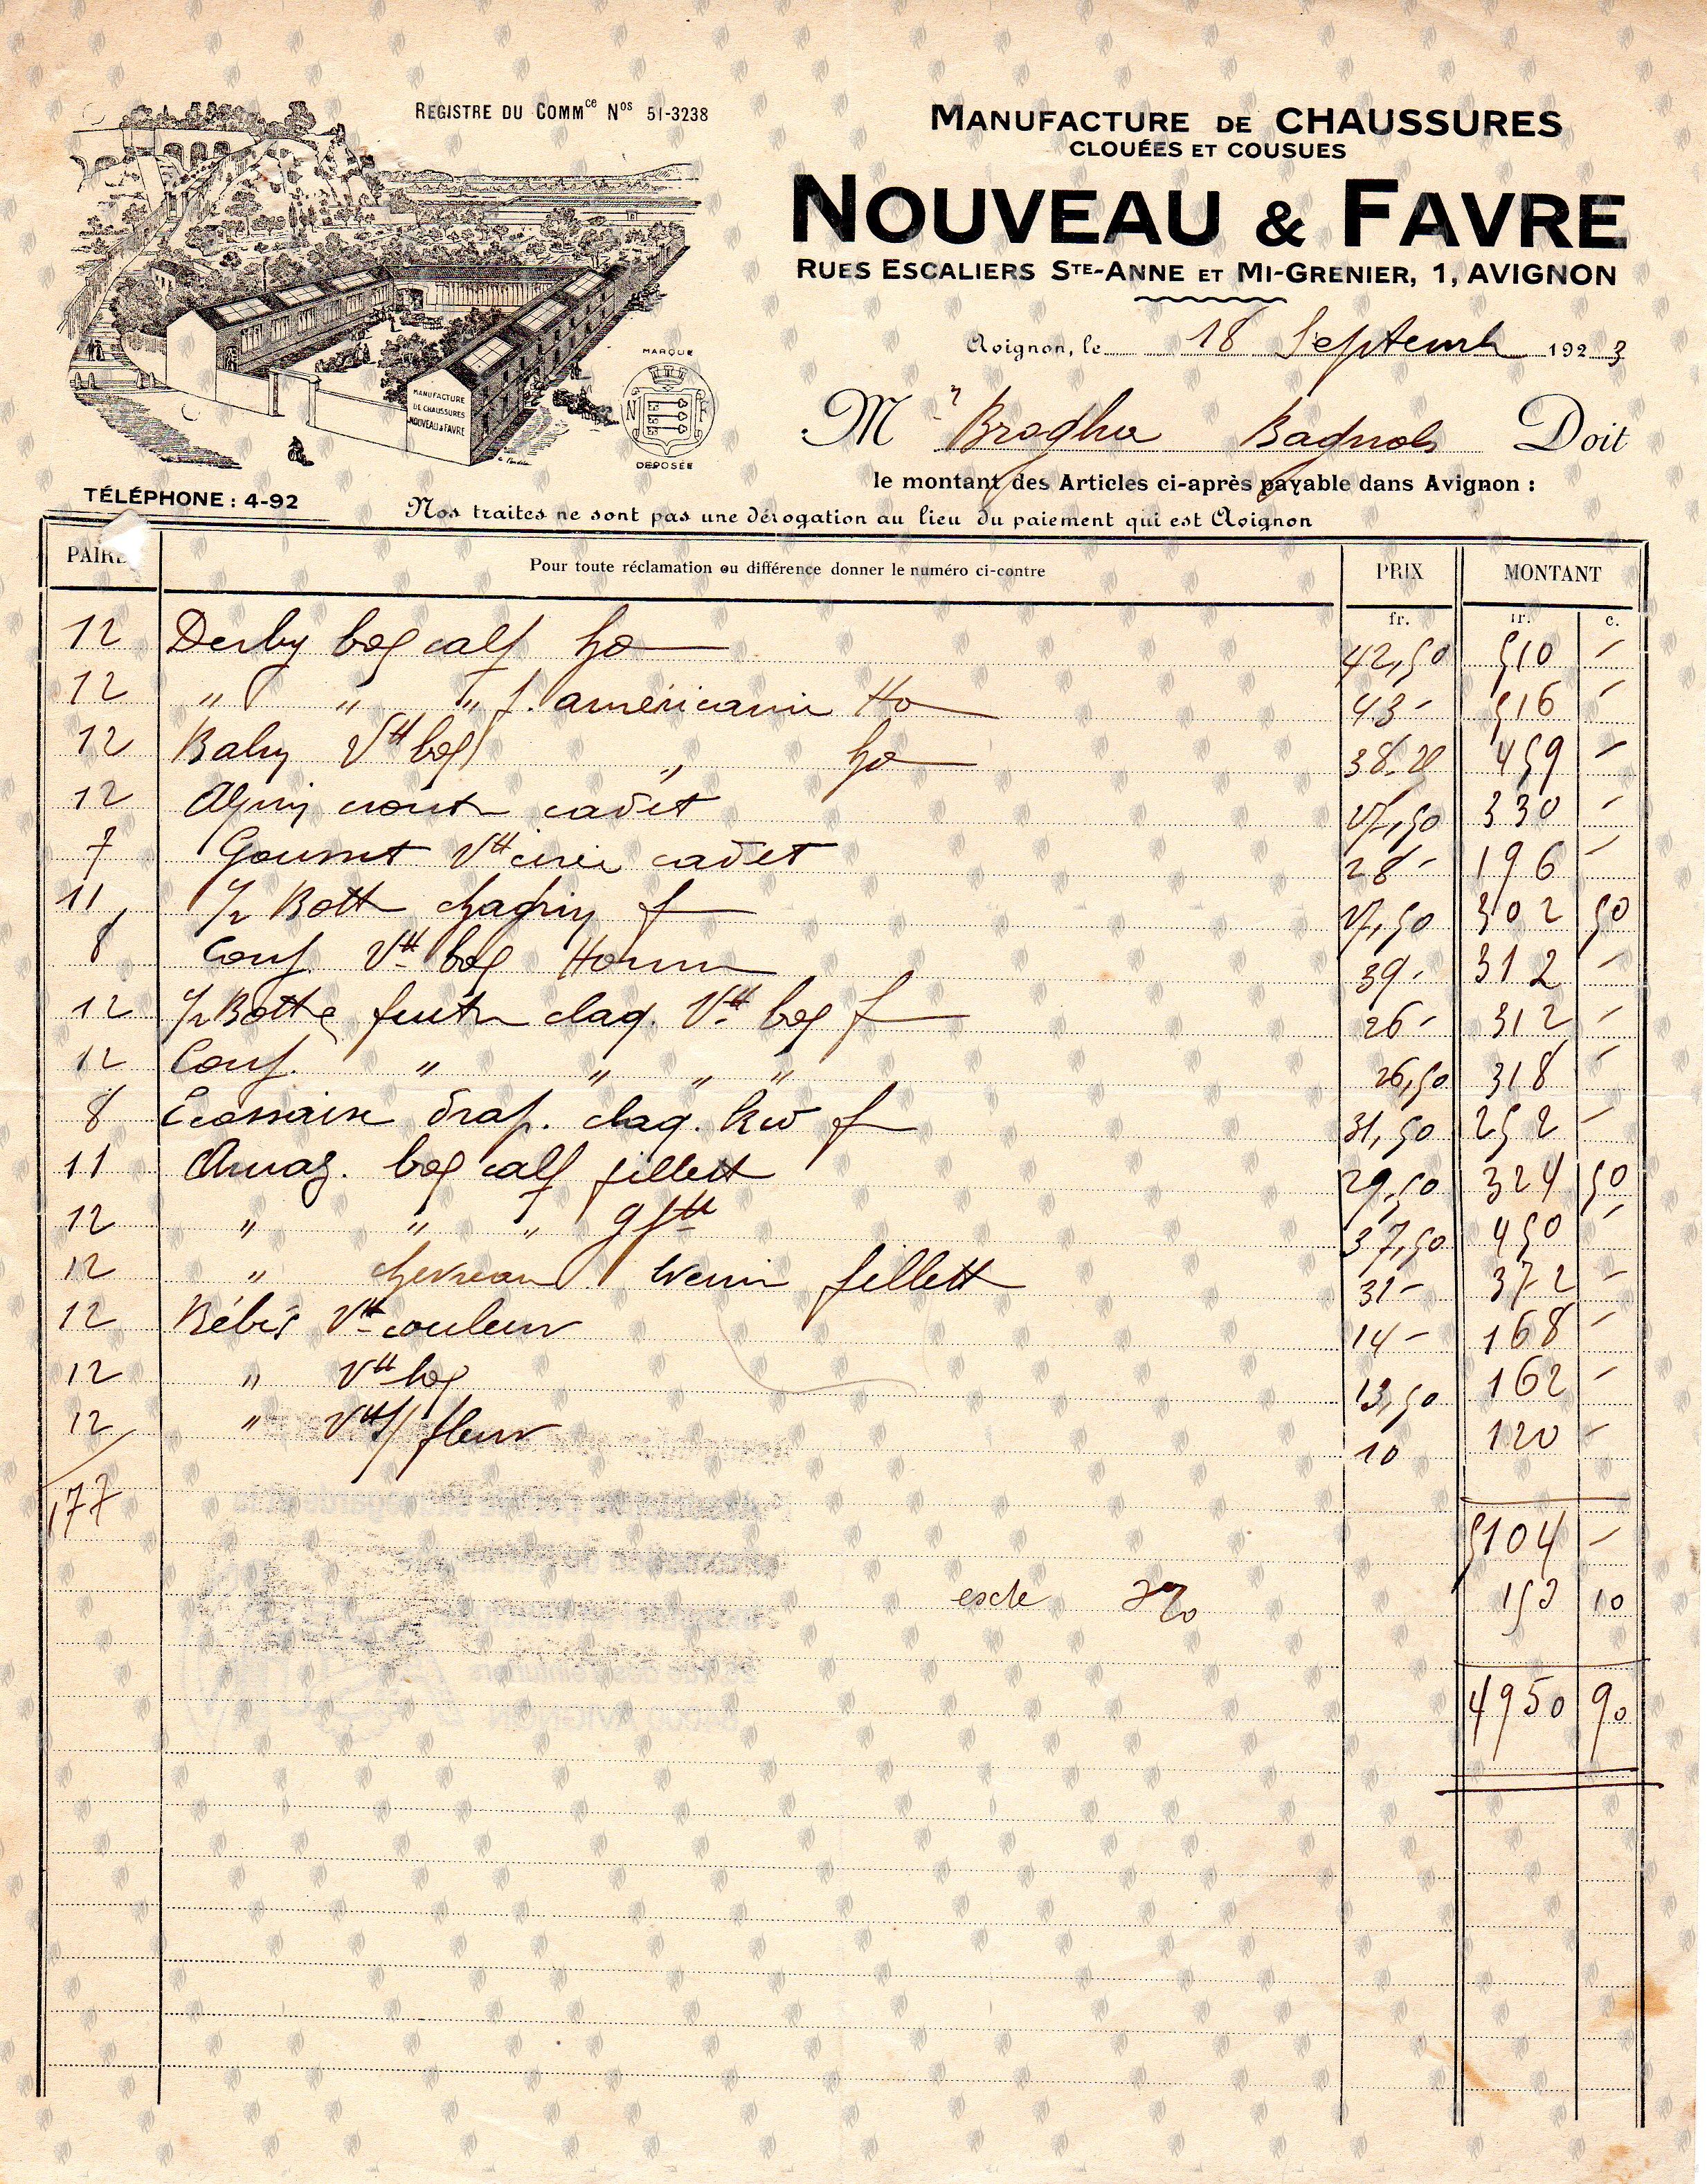 REGISTRE DU COMMce Nos 51-3238
MANUFACTURE DE CHAUSSURES
CLOUÉES ET COUSUES
NOUVEAU & FAVRE
RUES ESCALIERS STE-ANNE ET MI-GRENIER, 1, AVIGNON
MANUFACTURE
DE CHAUSSURES
NOUVEAU & FAVRE
MARQUE
N F
DEPOSÉE
Avignon, le 18 Septembre 1923
M r Bagnols Doit
le montant des Articles ci-après payable dans Avignon :
TÉLÉPHONE : 4-92
Nos traites ne sont pas une dérogation au lieu du paiement qui est Avignon
PAIRE Pour toute réclamation ou différence donner le numéro ci-contre PRIX MONTANT
fr. fr. c.
12 Derby box calf ho 42,50 510 -
12 " " " f. américaine Ho 43 - 516 -
12 Baby Vtt box " ho 38.25 459 -
12 croute cadet 27,50 330 -
7 Vtt cirée cadet 28 - 196 -
11 1/2 Bott chagrin f 27,50 302 50
8 Conf Vtt box Homme 39 - 312 -
12 1/2 Botte feutre claq. Vtt box f 26 - 312 -
12 Conf. " " " " 26,50 318 -
8 drap. claq. f 31,50 252 -
11 Amaz. box calf fillett 29,50 324 50
12 " " " gftte 37,50 450 -
12 " chevreau vernis fillett 31 - 372 -
12 Bébés Vtt couleur 14 - 168 -
12 " Vtt box 13,50 162 -
12 " Vtt s/ fleur 10 120 -
177
5104 -
escte 3% 153 10
4950 90